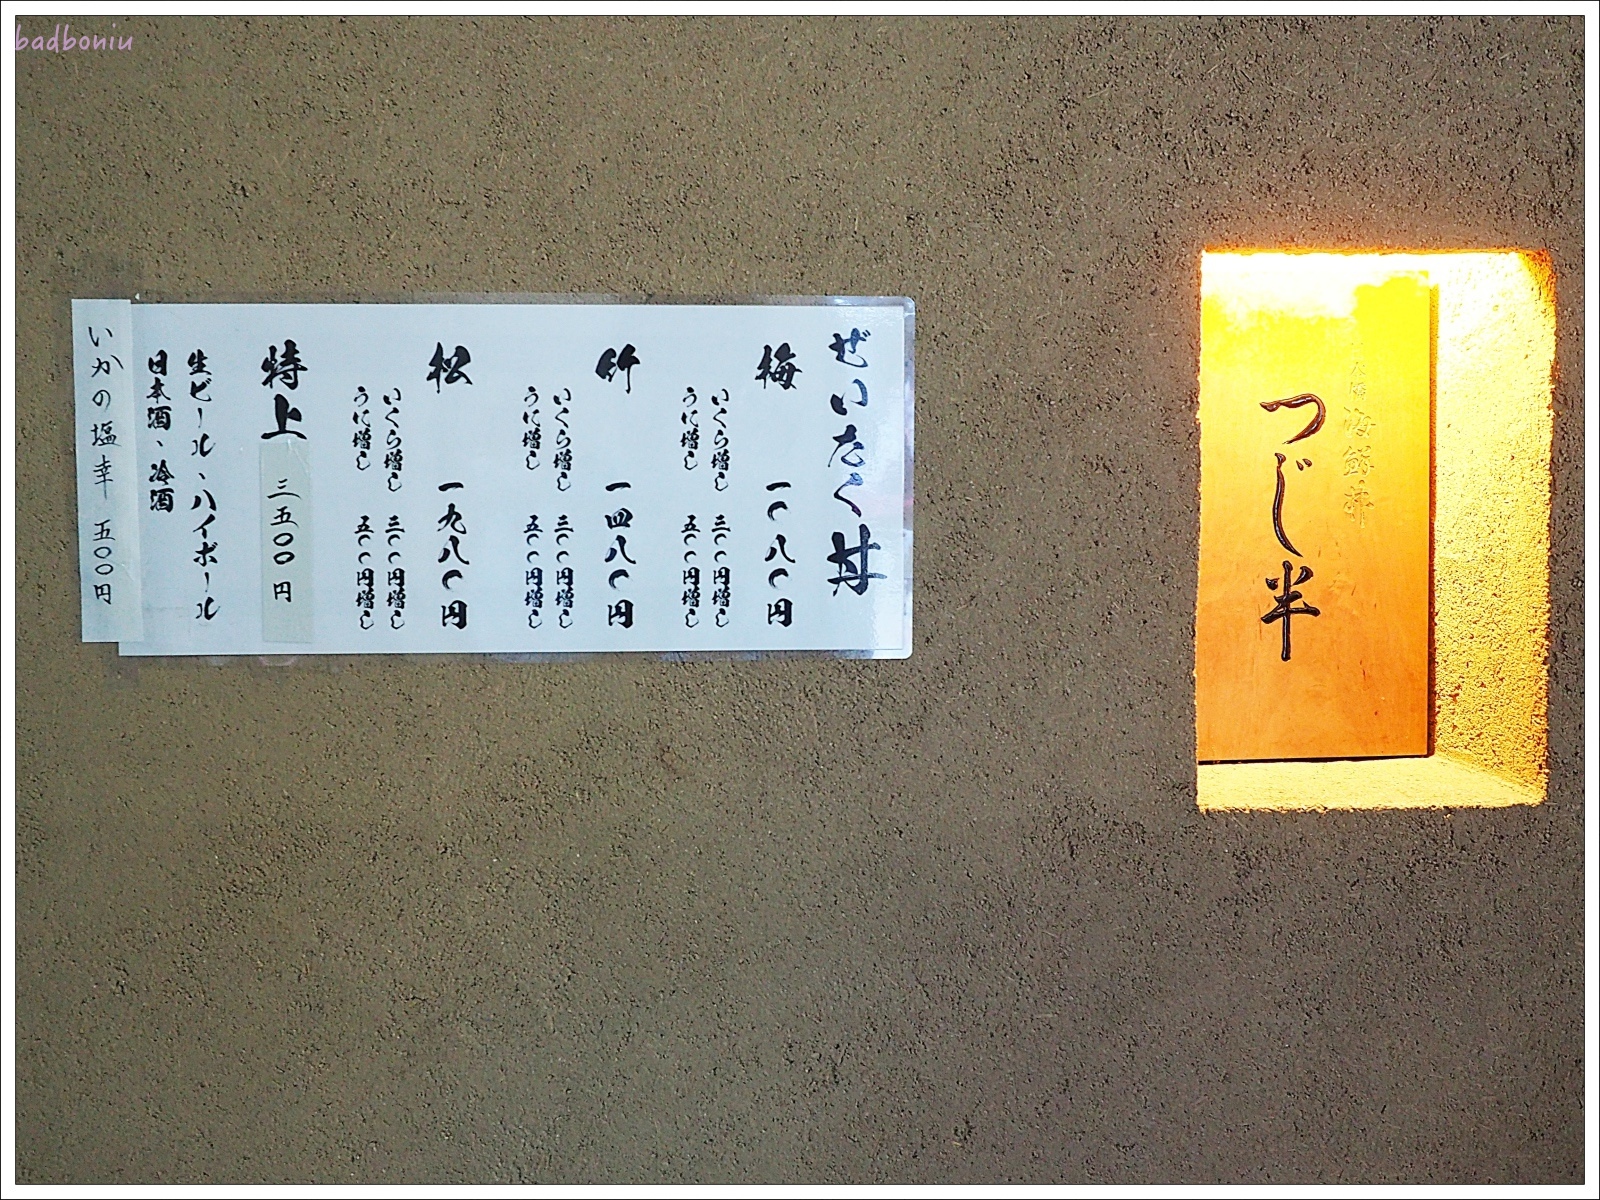 badboniu
つじ半
ぜいたく丼
梅 一〇八〇円
いくら増し 三〇〇円増し
うに増し 五〇〇円増し
竹 一四八〇円
いくら増し 三〇〇円増し
うに増し 五〇〇円増し
松 一九八〇円
いくら増し 三〇〇円増し
うに増し 五〇〇円増し
特上 三五〇〇円
生ビール、ハイボール
日本酒、冷酒
いかの塩辛 五〇〇円